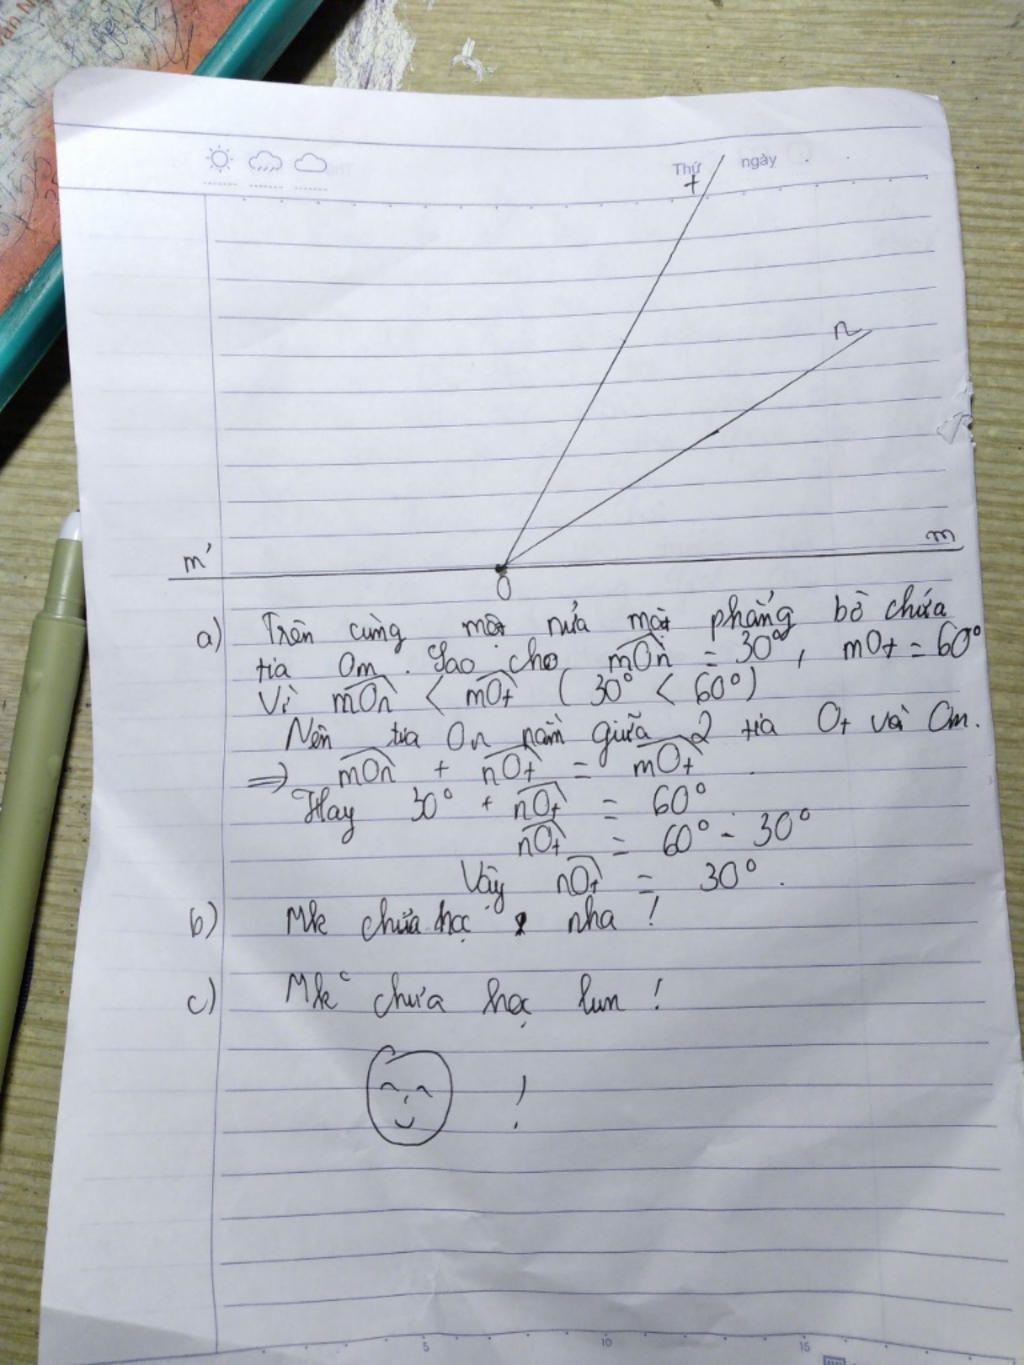 Thứ ngày
t
n
m' m
O
a) Trên cùng một nửa mặt phẳng bờ chứa
tia Om. Sao cho mOn = 30°, mOt = 60°
Vì mOn < mOt (30° < 60°)
Nên tia On nằm giữa 2 tia Ot và Om.
=> mOn + nOt = mOt
Hay 30° + nOt = 60°
nOt = 60° - 30°
Vậy nOt = 30°.
b) Mk chưa học nha !
c) Mk chưa học lun !
!
5 10 15